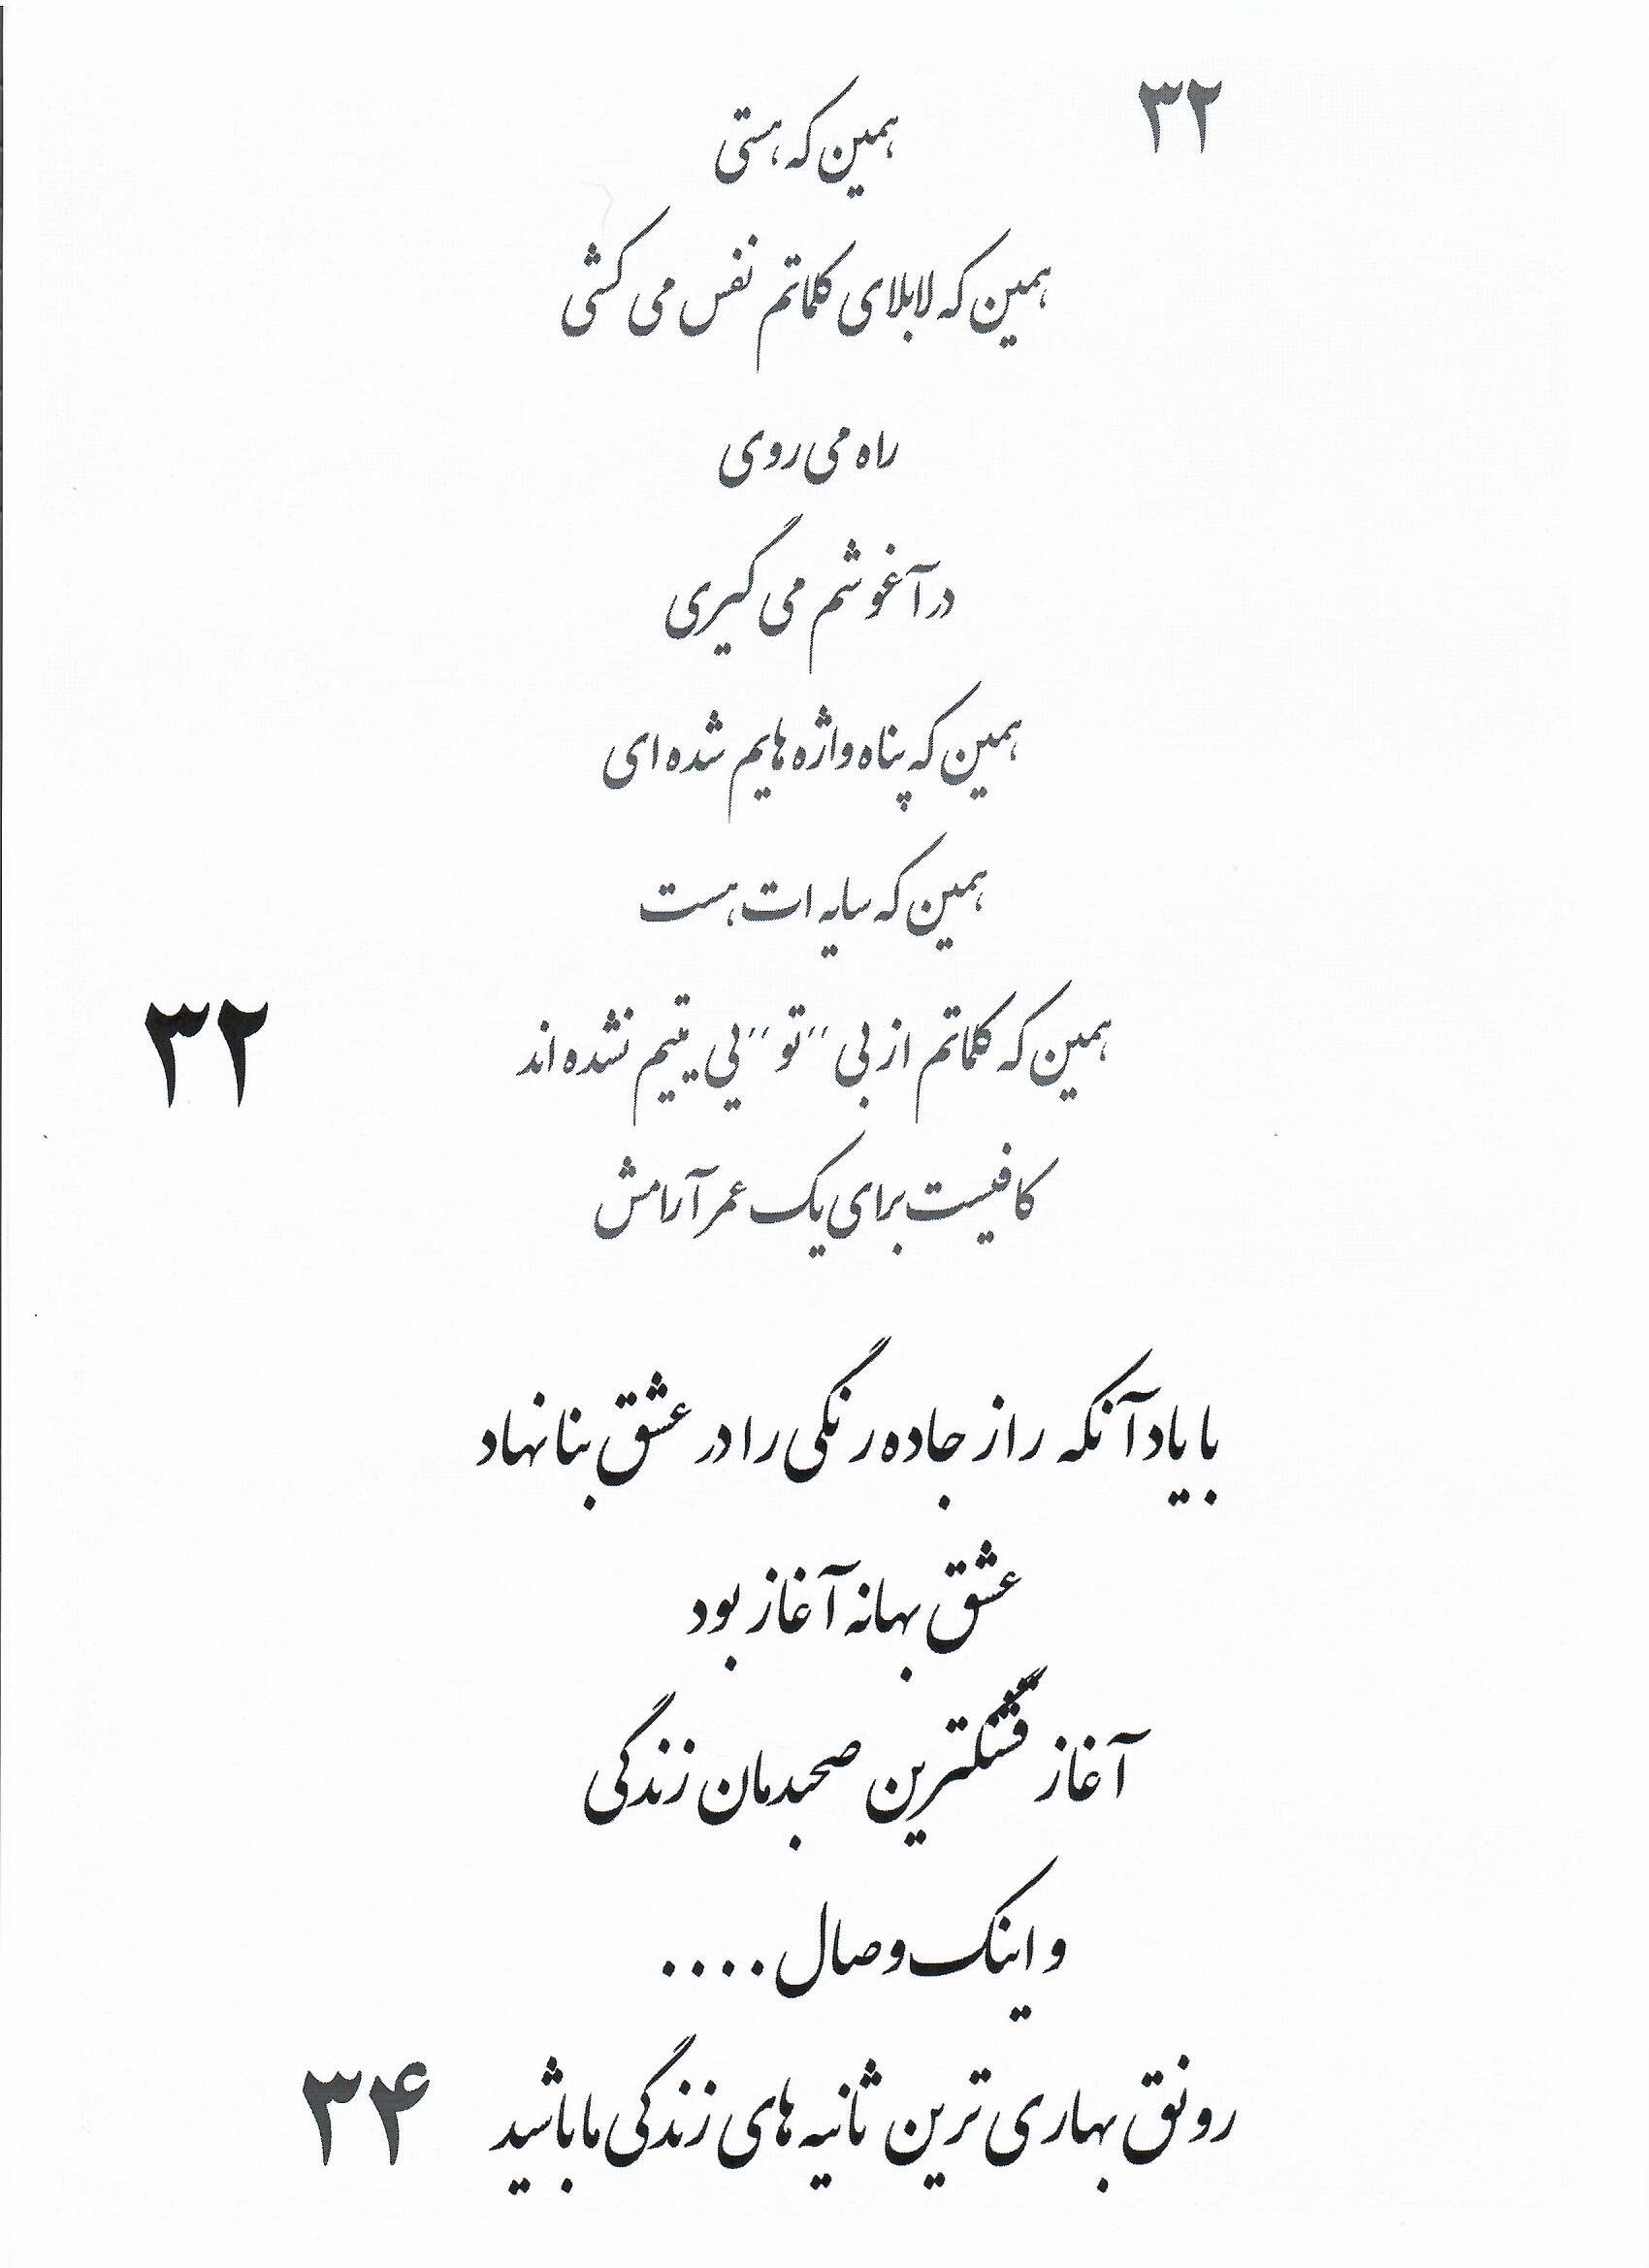 ۳۲
همین که هستی
همین که لابلای کلماتم نفس می کشی
راه می روی
در آغوشم می گیری
همین که پناه واژه هایم شده ای
همین که سایه ات هست
همین که کلماتم از بی "تو" یی یتیم نشده اند
۳۲
کافیست برای یک عمر آرامش
با یاد آنکه راز جاده رنگی را در عشق بنا نهاد
عشق بهانه آغاز بود
آغاز قشنگترین صحبدمان زندگی
و اینک وصال ....
رونق بهاری ترین ثانیه های زندگی ما باشید
۳۴